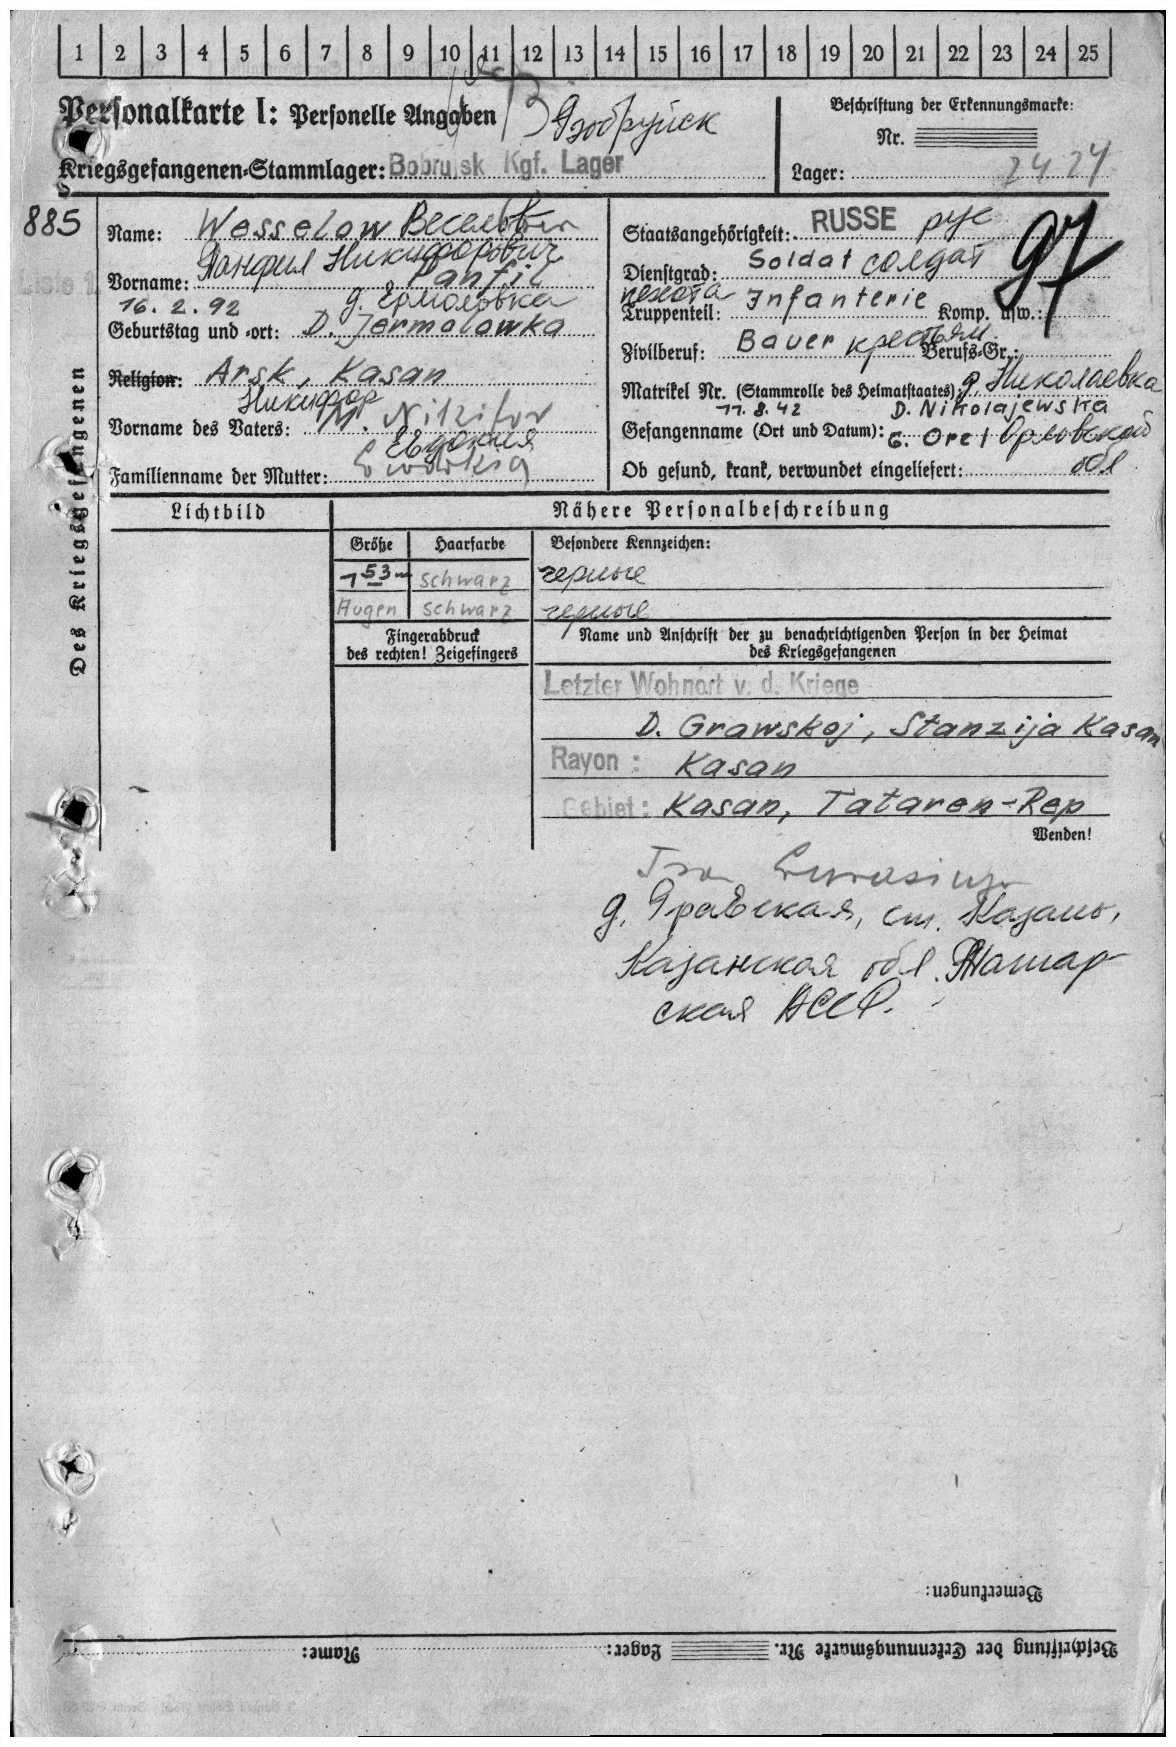 1 2 3 4 5 6 7 8 9 10 11 12 13 14 15 16 17 18 19 20 21 22 23 24 25
Personalkarte I: Personelle Angaben
Бобруйск
Kriegsgefangenen-Stammlager: Bobruisk Kgf. Lager
Beschriftung der Erkennungsmarke:
Nr.
Lager: 2424
885
Liste 1.
Des Kriegsgefangenen
Name: Wesselow Веселов
Панфил Никифорович
Vorname: Panfil
16. 2. 92 д. Ермоловка
Geburtstag und -ort: D. Jermolowka
Religion: Arsk, Kasan
Никифор
Vorname des Vaters: Nikifor
Евдокия
Familienname der Mutter: Ewdokia
Staatsangehörigkeit: RUSSE рус
97
Dienstgrad: Soldat солдат
пехота
Truppenteil: Infanterie Komp. usw.:
Zivilberuf: Bauer крестьян Berufs-Gr.:
Matrikel Nr. (Stammrolle des Heimatstaates): д. Николаевка
11. 8. 42 D. Nikolajewska
Gefangenname (Ort und Datum): G. Orel Орловской
Ob gesund, krank, verwundet eingeliefert: обл
Lichtbild
Nähere Personalbeschreibung
Größe Haarfarbe Besondere Kennzeichen:
1 53 m schwarz черные
Augen schwarz черные
Fingerabdruck
des rechten! Zeigefingers
Name und Anschrift der zu benachrichtigenden Person in der Heimat
des Kriegsgefangenen
Letzter Wohnort v. d. Kriege
D. Grawskoj, Stanzija Kasan
Rayon: Kasan
Gebiet: Kasan, Tataren-Rep
Wenden!
д. Гравская, ст. Казань,
Казанская обл. Татар
ская АССР.
Bemerkungen:
Beschriftung der Erkennungsmarke Nr. Lager: Name: